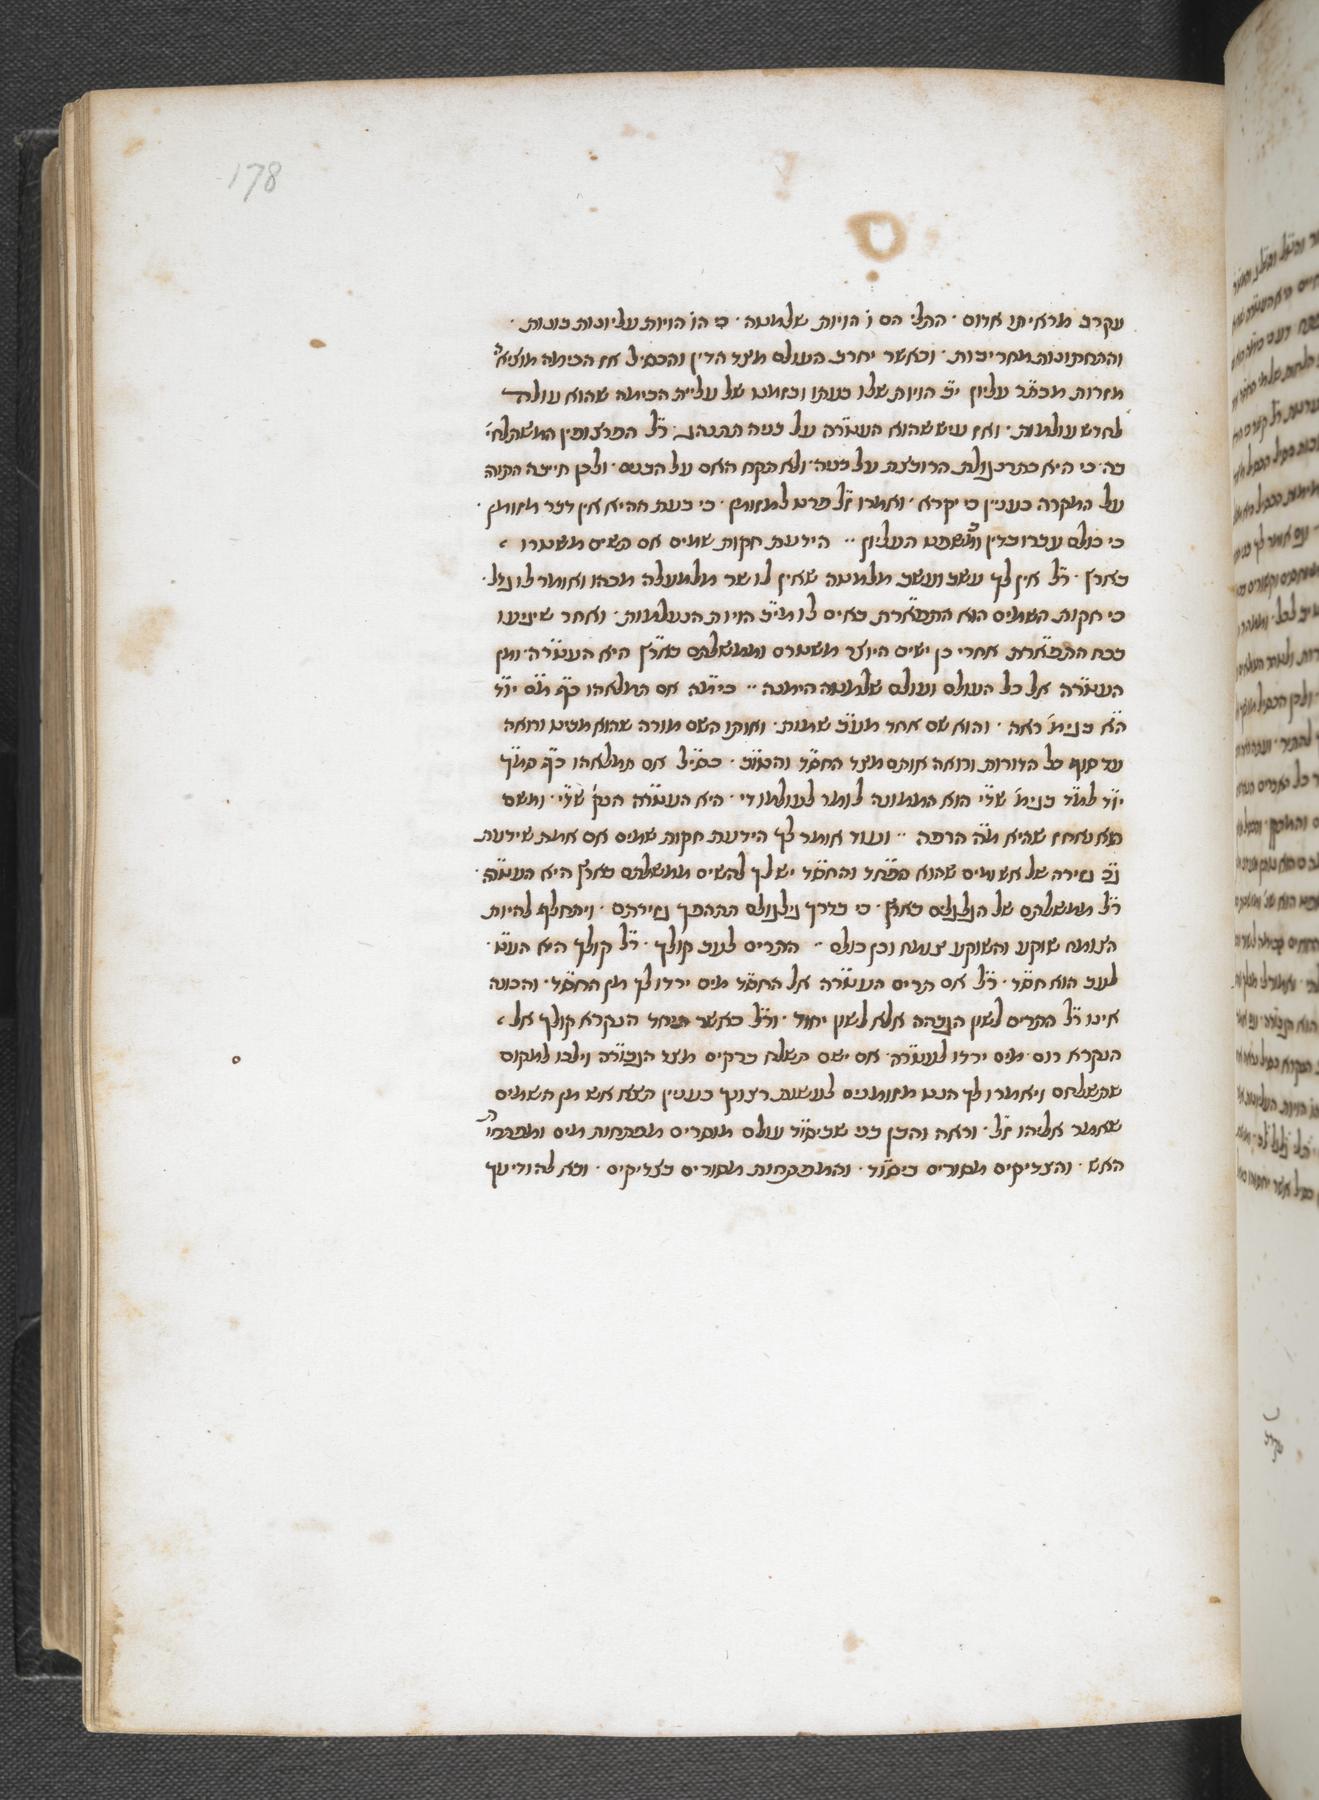 178
עקרב מראיתו אדום · התלי הם ו׳ הויות שלמטה · כי הו׳ הויות עליונות בונות ·
והתחתונות מחריבות · וכאשר יחרב העולם מצד הדין והכסיל אז הכימה מוציא׳
מזרות מכתר עליון י״ב הויות שלו בעתו ובזמנו של עליית הכימה שהוא עולה
לחדש עולמות · ואז עיש שהוא העטרה על בניה תנחם · ר״ל הפרצופין המשתלחי׳
בה · כי היא כתרנגולת הרובצת על בניה · ולא תקח האם על הבנים · ולכן חייבה התורה
על המקרה כענין כי יקרא · ואמרו ז״ל פרט למזומן · כי בעת ההיא אין דבר מזומן ·
כי כולם עברו בדין ומשפט העליון ·· הידעת חקות שמים אם תשים משטרו
בארץ · ר״ל אין לך עשב ועשב מלמטה שאין לו שר מלמעלה מכהו ואומר לו גדל ·
כי חקות השמים הוא התפארת באים לו מי״ב הויות הנעלמות · ואחר שיגיעו
בכח התפארת אחרי כן ישים היוצר משטרם וממשלתם בארץ היא העטרה · ומן
העטרה אל כל העולם ועולם שלמטה הימנה ·· כימה אם תמלאהו כף מם יוד
הא בגימ׳ ראה · והוא שם אחד מע״ב שמות · ואותו השם מורה שהוא מביט ורואה
עד סוף כל הדורות ורואה אותם מצד החסד והטוב · כסיל אם תמלאהו כף סמך
יוד למד בגימ׳ שדי הוא הממונה לומר לעולמו די · היא העטרה הנק׳ שדי · ומשם
הוא נאחז שהיא מדה הרפה ·· ועוד אומר לך הידעת חקות שמים אם אתה שידעת
ג״כ גזירה של אש ומים שהוא הפחד והחסד יש לך להשים ממשלתם בארץ היא העטרה ·
ר״ל ממשלתם של הגלגלים בארץ · כי בדרך גילגולם תתהפך גזירתם · ויתחלף להיות
הצומח שוקע והשוקע צומח וכן כולם ·· התרים לעב קולך · ר״ל קולך היא העט׳ ·
לעב הוא חסד · ר״ל אם תרים העטרה אל החסד מים ירדו לך מן החסד · והכונה
אינו ר״ל התרים לשון הגבהה אלא לשון יחוד · ור״ל כאשר תיחד הנקרא קולך אל
הנקרא רום · מים ירדו לעטרה · אם ישם תשלח ברקים מצד הגבורה וילכו למקום
שתשלחם ויאמרו לך הננו מזומנים לעשות רצונך כענין הצא אש מן השמים
שאמר אליהו ז״ל · וראה והבן כפי שביסוד עולם מוסרים מפתחות מים ומפתחי
האש · והצדיקים מסורים ביסוד · והמפתחות מסורים בצדיקים · ובא להודיעך